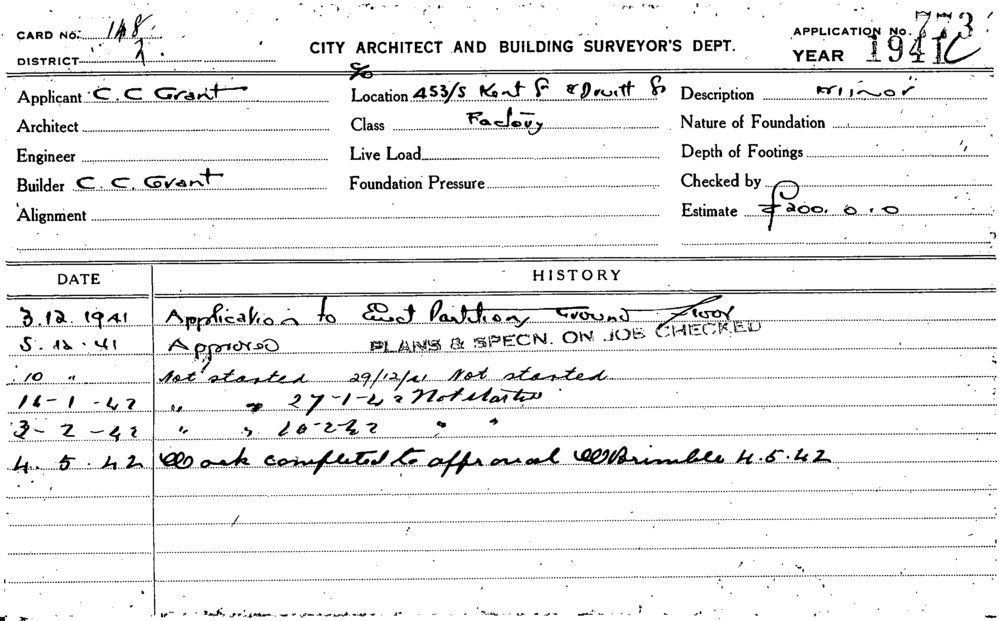 CARD No. 148
APPLICATION No. 773
DISTRICT 2
CITY ARCHITECT AND BUILDING SURVEYOR'S DEPT.
YEAR 1941
c/o
Applicant C. C Grant Location 453/5 Kent St & Druitt St Description Minor
Architect Class Factory Nature of Foundation
Engineer Live Load Depth of Footings
Builder C. C. Grant Foundation Pressure Checked by
Alignment Estimate £200. 0. 0
DATE HISTORY
3.12.1941 Application to Erect Partition, Ground Floor
5.12.41 Approved PLANS & SPECN. ON JOB CHECKED
10 " Not started 29/12/41 Not started
16-1-42 " " 27-1-42 Not started
3-2-42 " " 16-2-42 " "
4.5.42 Work completed to approval W Brimble 4.5.42